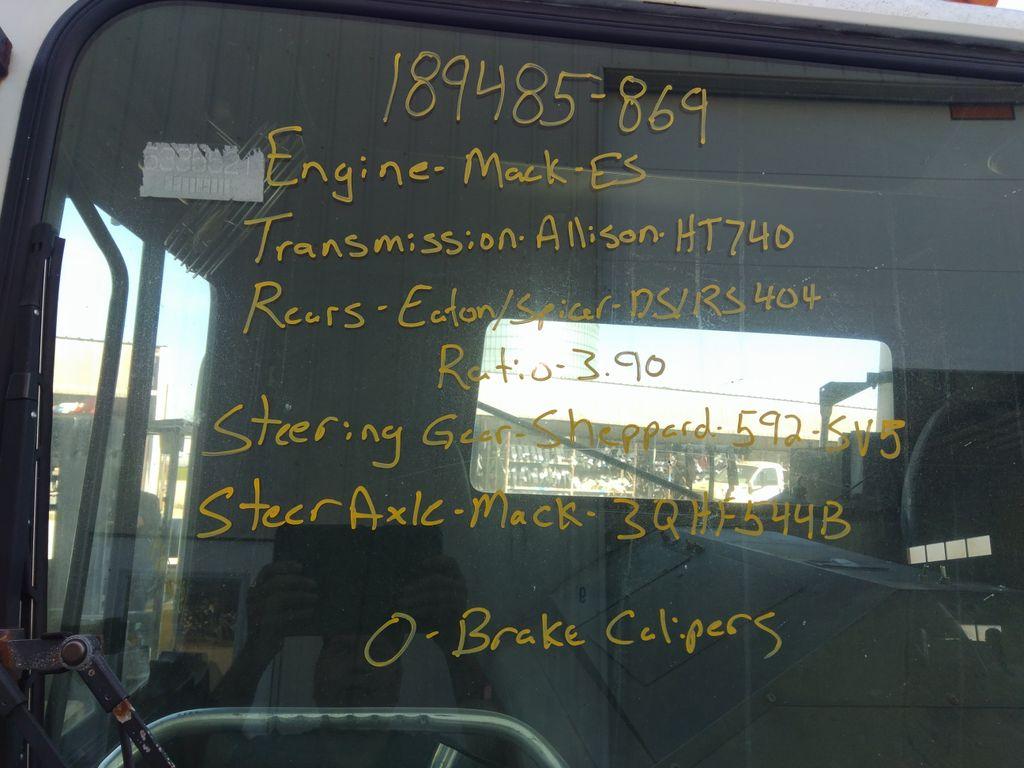 189485-869
Engine-Mack-ES
Transmission-Allison-HT740
Rears-Eaton/Spicer-DS/RS404
Ratio-3.90
Steering Gear-Sheppard-592-SV5
Steer Axle-Mack-3QHF544B
0-Brake Calipers